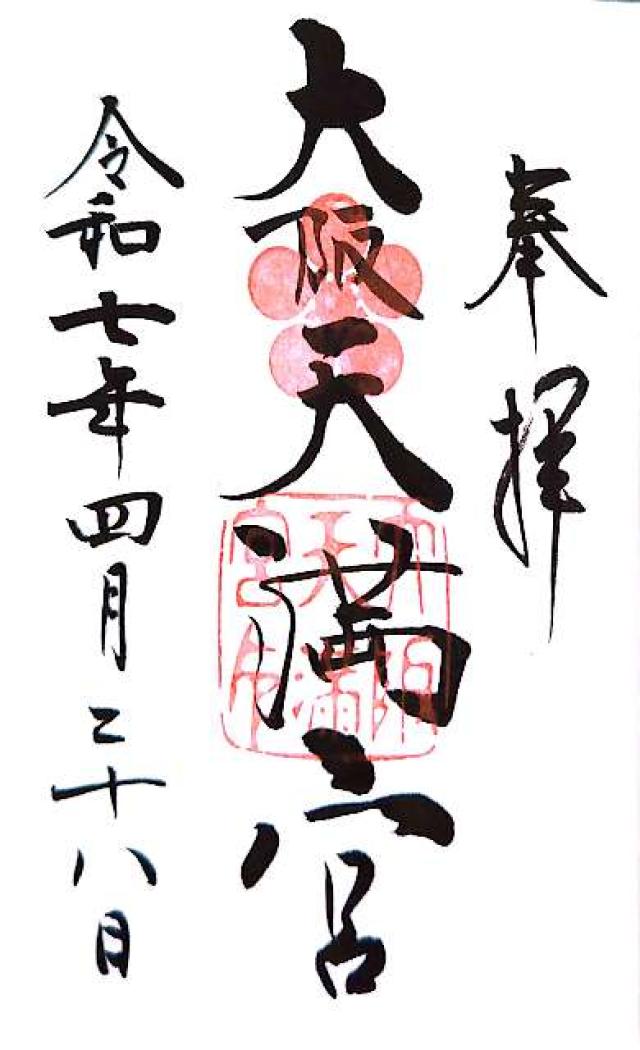 奉拝
大阪天満宮
大阪天満宮印
令和七年四月二十八日